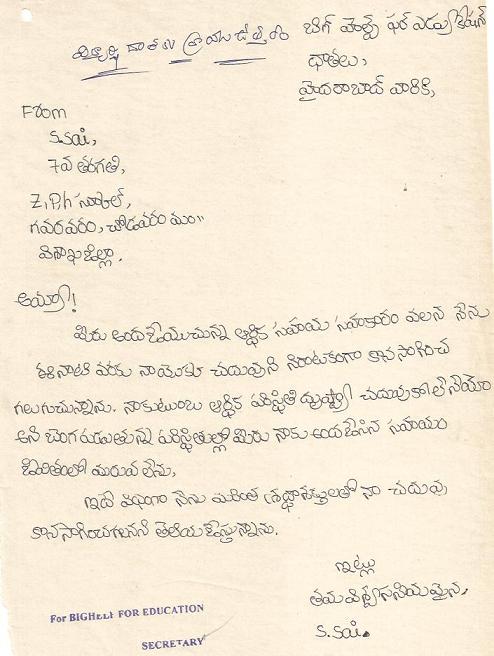 బిగ్ హెల్ప్ ఫర్ ఎడ్యుకేషన్
దాతలు,
హైదరాబాద్ వారికి,
From
S.Sai,
7వ తరగతి,
Z.P.h స్కూల్,
గవరవరం, చోడవరం మం"
విశాఖజిల్లా.
అయ్యా!
మీరు అందజేయుచున్న ఆర్థిక సహాయ సహకారం వలన నేను
ఈనాటి వరకు నాయొక్క చదువుని నిరంటకంగా కొనసాగించ
గలుగుచున్నాను. నాకుటుంబ ఆర్థిక పరిస్థితి దృష్ట్యా చదువుకోలేనేమో
అని బెంగపడుతున్న పరిస్థితుల్లో మీరు నాకు అందజేసిన సహాయం
జీవితంలో మరువలేను,
ఇదే విధంగా నేను మరింత శ్రద్ధాసక్తులతో నా చదువు
కొనసాగించగలనని తెలియజేస్తున్నాను.
ఇట్లు
తమ విశ్వసనీయమైన,
S.Sai.
For BIGHELP FOR EDUCATION
SECRETARY